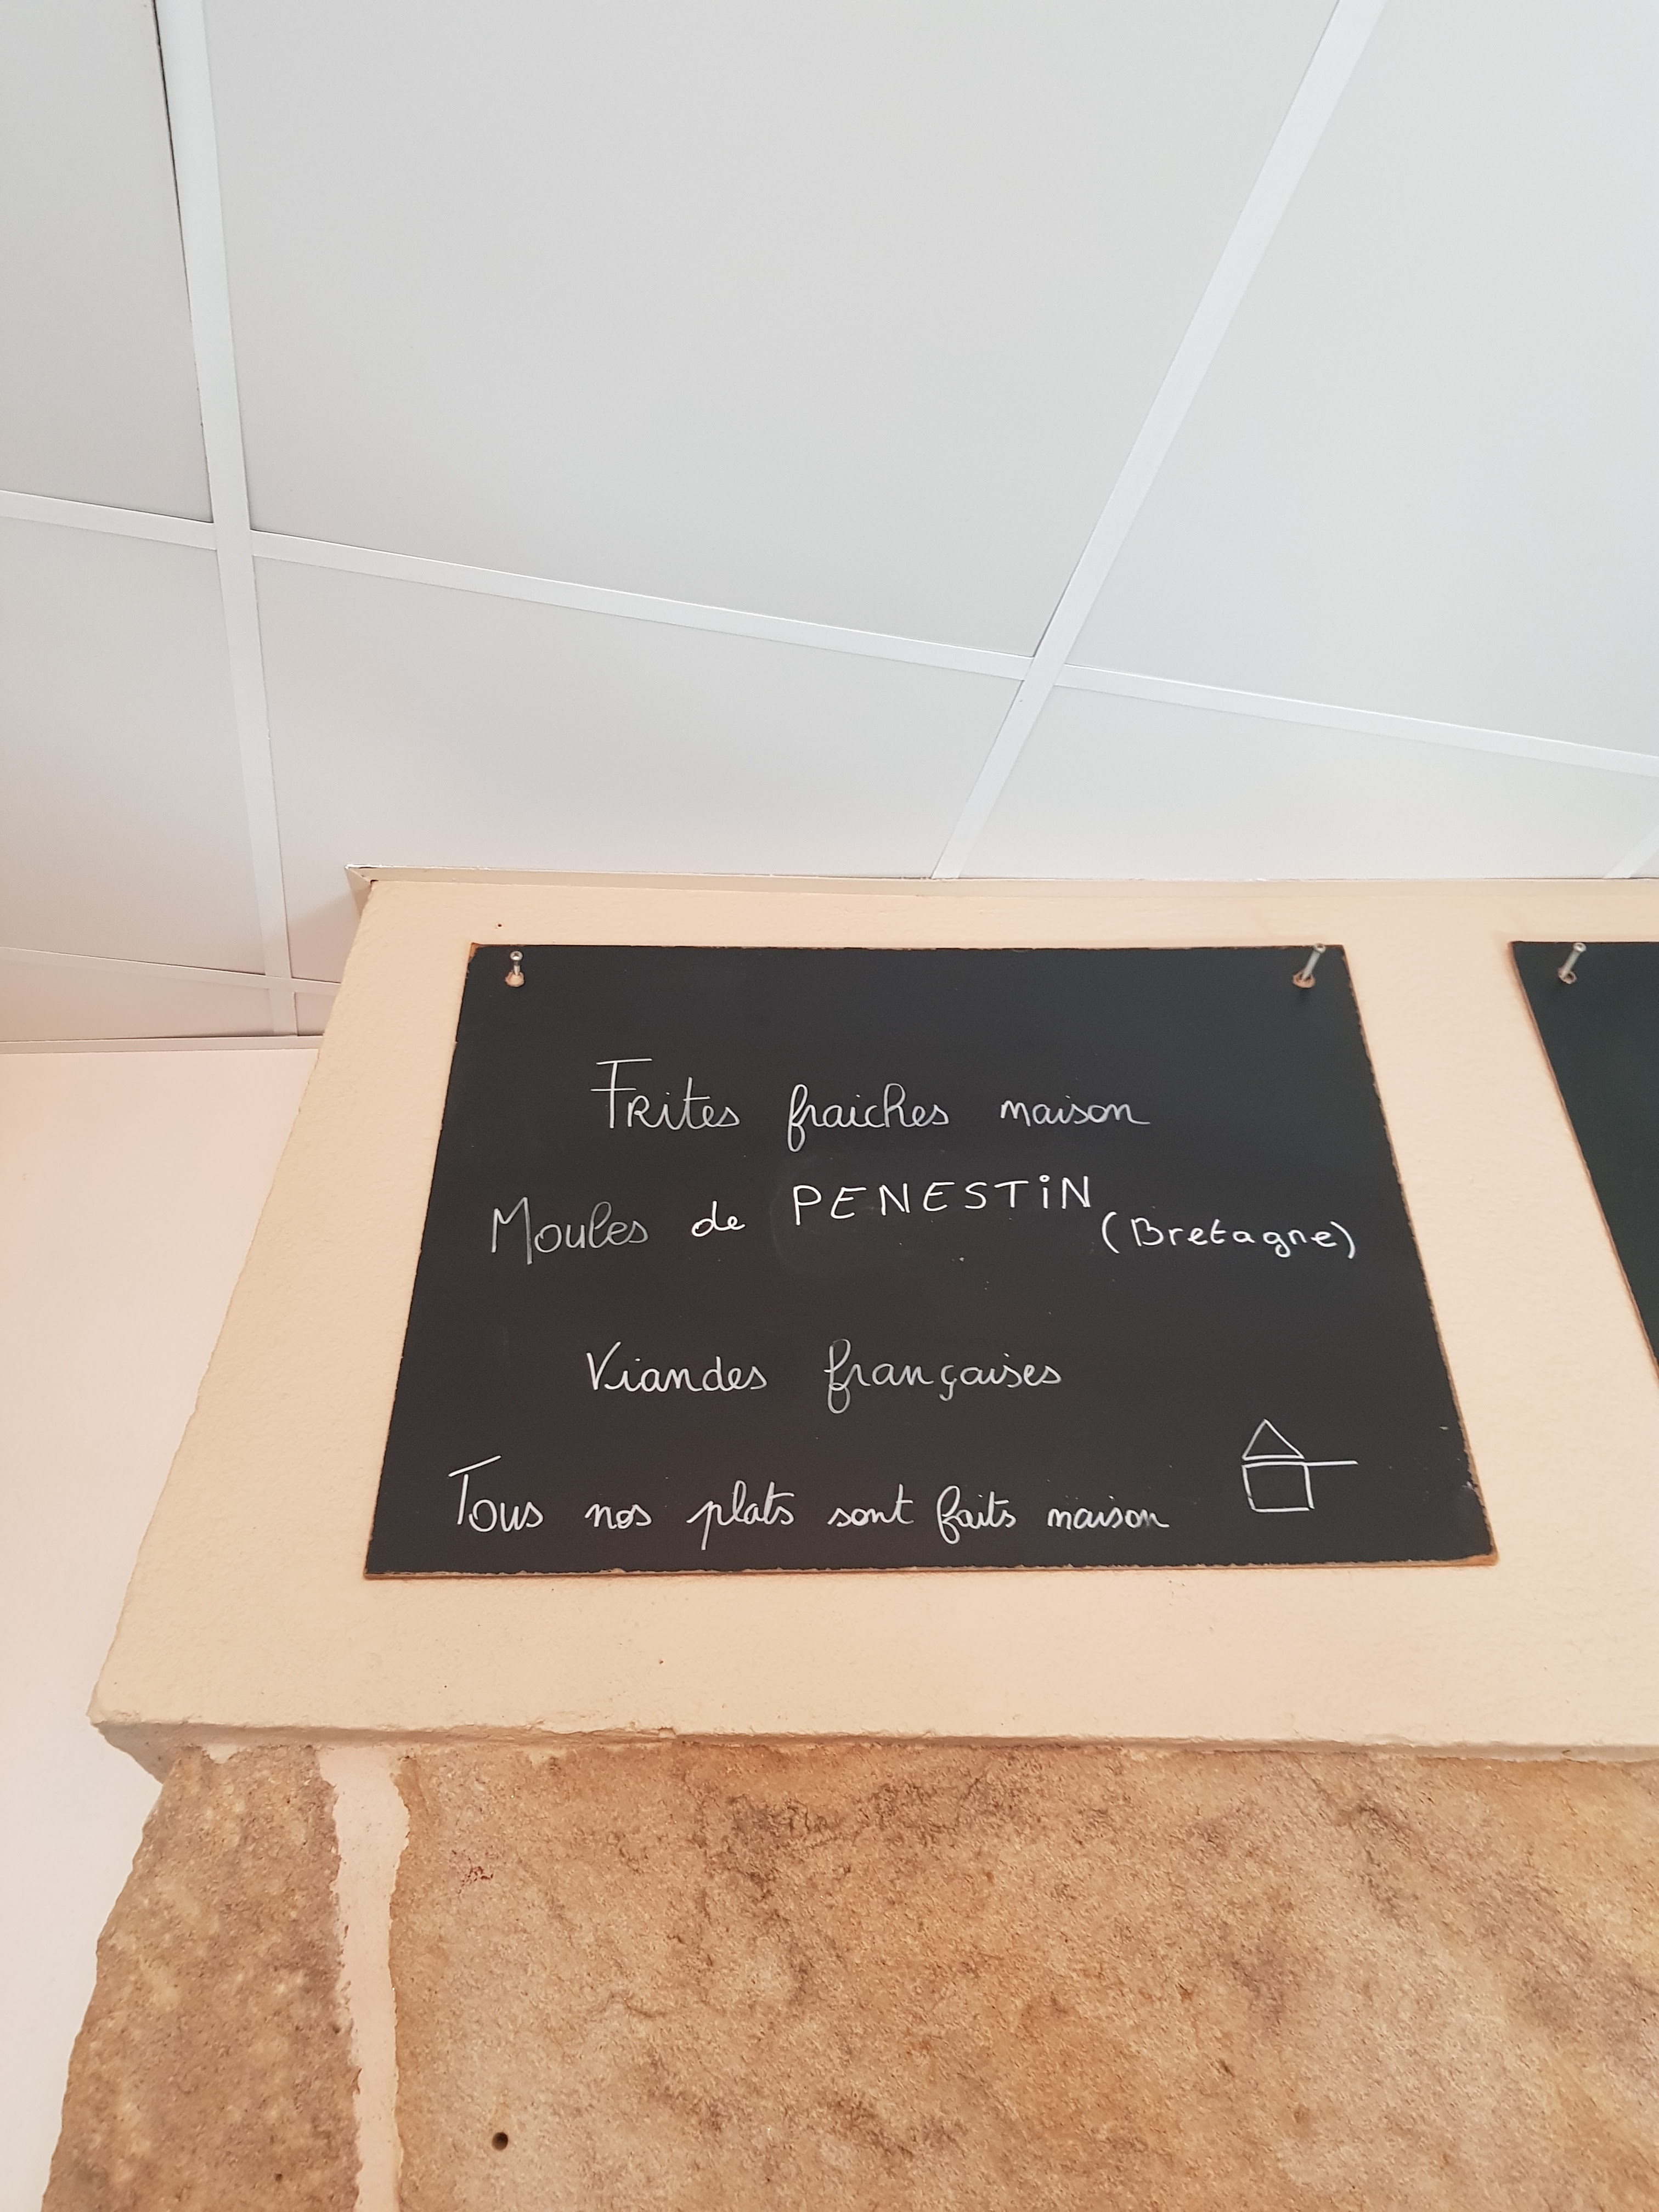 Frites fraiches maison
Moules de PENESTiN (Bretagne)
Viandes françaises
Tous nos plats sont faits maison